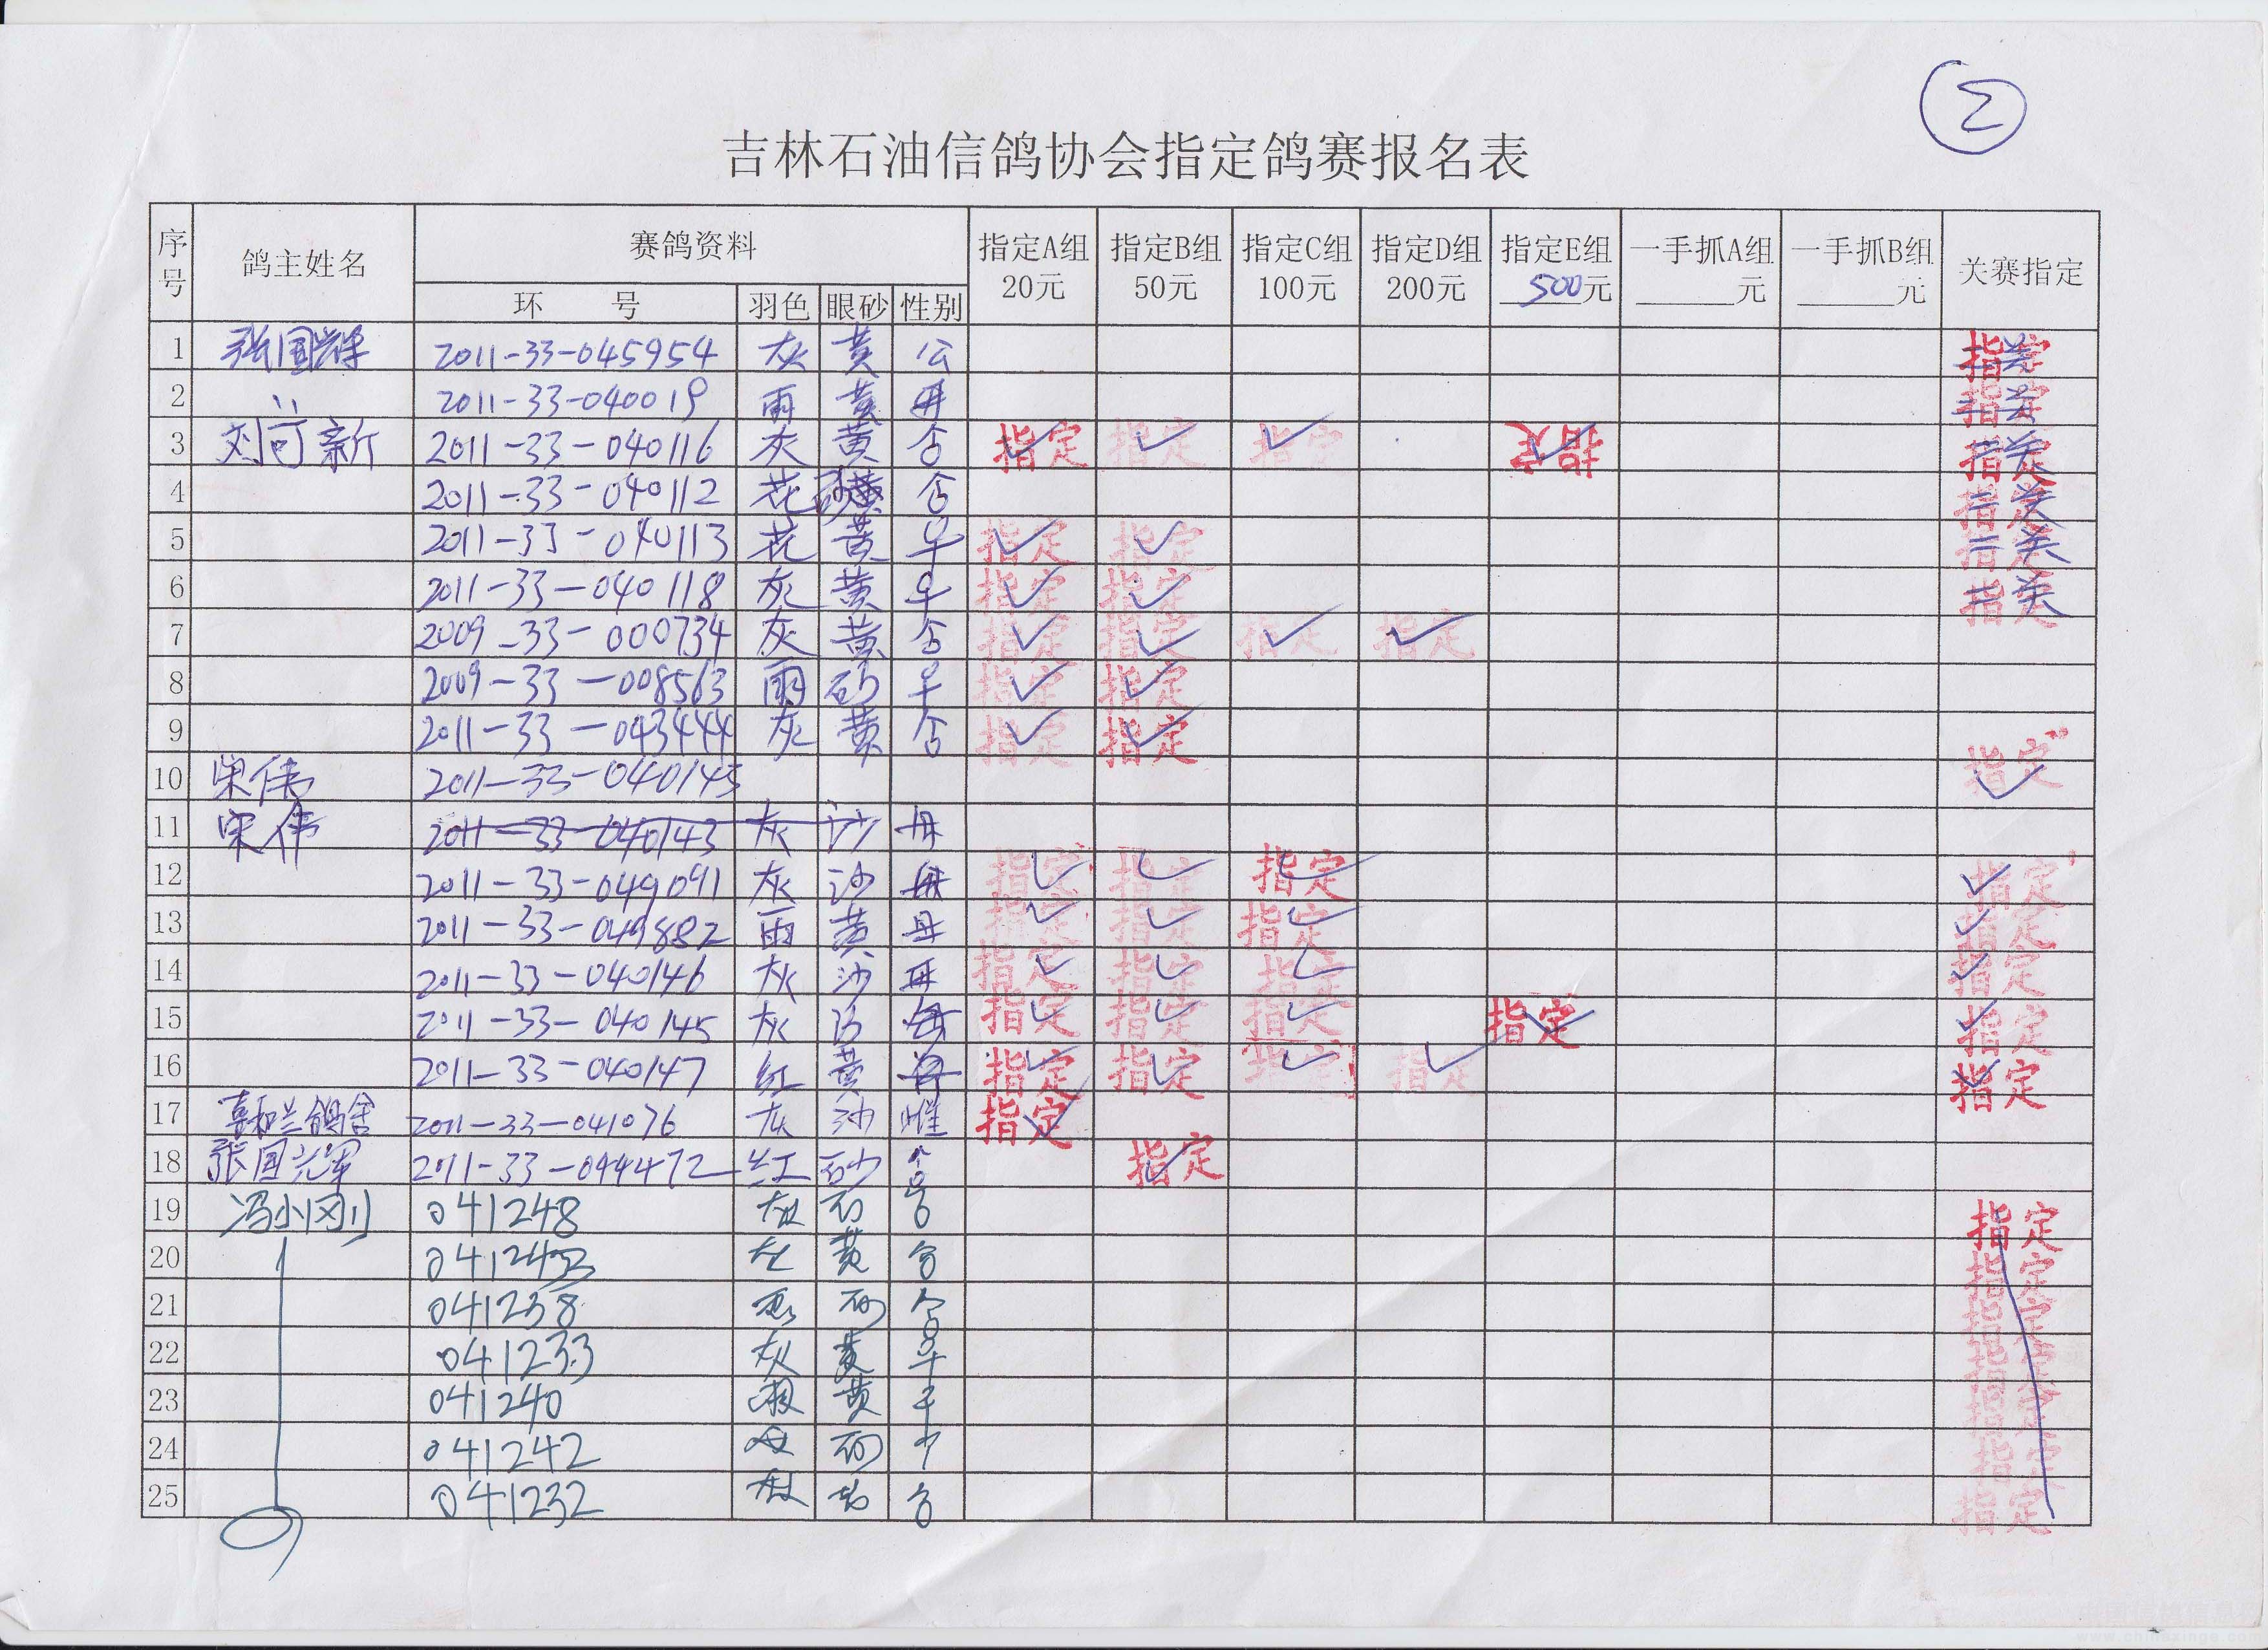 2
吉林石油信鸽协会指定鸽赛报名表
序号 鸽主姓名 赛鸽资料 指定A组 20元 指定B组 50元 指定C组 100元 指定D组 200元 指定E组 500元 一手抓A组 ______元 一手抓B组 ______元 关赛指定
环 号 羽色 眼砂 性别
1 张国辉 2011-33-045954 灰 黄 公 指定
2 〃 2011-33-040019 雨 黄 母 指定
3 2011-33-040116 灰 黄 指定 ✓ 指定 ✓ 指定 ✓ 指定 ✓ 指定 二关
4 2011-33-040112 花 黄 指定 二关
5 2011-33-040113 花 黄 ♀ 指定 ✓ 指定 ✓ 指定 二关
6 2011-33-040118 灰 黄 ♀ 指定 ✓ 指定 ✓ 指定 二关
7 2009-33-000734 灰 黄 指定 ✓ 指定 ✓ 指定 ✓ 指定 ✓
8 2009-33-008563 雨 砂 ♀ 指定 ✓ 指定 ✓
9 2011-33-043444 灰 黄 指定 ✓ 指定 ✓
10 宋伟 2011-33-040145 指定 ✓
11 宋伟 2011-33-040143 灰 沙 母
12 2011-33-049091 灰 沙 母 指定 ✓ 指定 ✓ 指定 ✓ 指定 ✓
13 2011-33-049882 雨 黄 母 指定 ✓ 指定 ✓ 指定 ✓ 指定 ✓
14 2011-33-040146 灰 沙 母 指定 ✓ 指定 ✓ 指定 ✓ 指定 ✓
15 2011-33-040145 灰 沙 母 指定 ✓ 指定 ✓ 指定 ✓ 指定 ✓ 指定 ✓
16 2011-33-040147 红 黄 母 指定 ✓ 指定 ✓ 指定 ✓ 指定 ✓ 指定 ✓
17 2011-33-041076 灰 沙 雌 指定 ✓
18 2011-33-044472 红 砂 指定 ✓
19 冯小刚 041248 指定
20 黄 指定
21 041238 砂 指定
22 041233 灰 黄 ♀ 指定
23 041240 黄 指定
24 041242 砂 指定
25 041232 指定